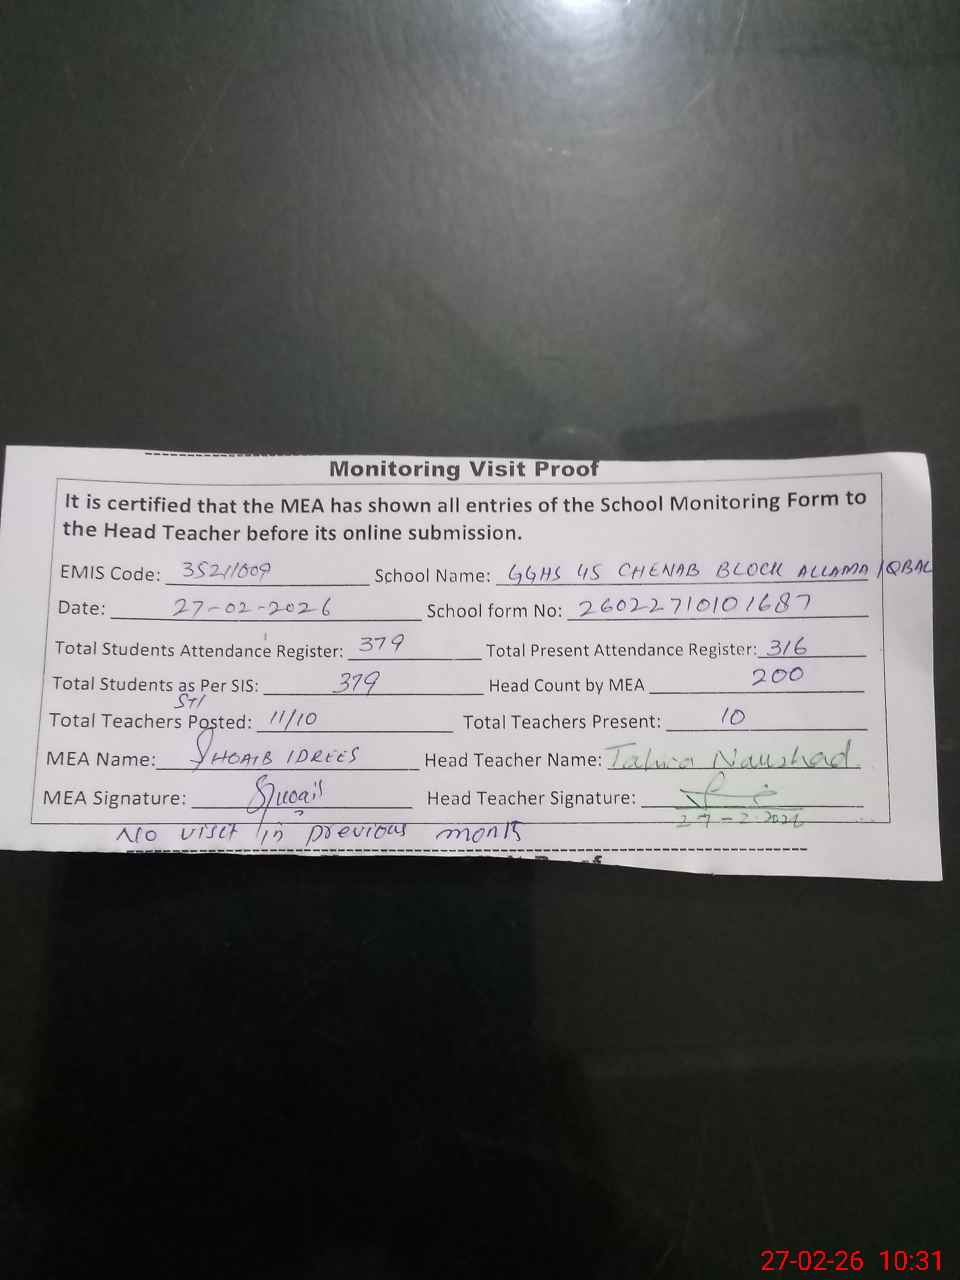 Monitoring Visit Proof
It is certified that the MEA has shown all entries of the School Monitoring Form to
the Head Teacher before its online submission.
EMIS Code: 35211009 School Name: GGHS 45 CHENAB BLOCK ALLAMA IQBAL
Date: 27-02-2026 School form No: 26022710101687
Total Students Attendance Register: 379 Total Present Attendance Register: 316
Total Students as Per SIS: 379 Head Count by MEA 200
STI
Total Teachers Posted: 11/10 Total Teachers Present: 10
MEA Name: SHOAIB IDREES Head Teacher Name: Tahira Naushad
MEA Signature: Shoaib Head Teacher Signature:
27-2-2026
No visit in previous month
27-02-26 10:31